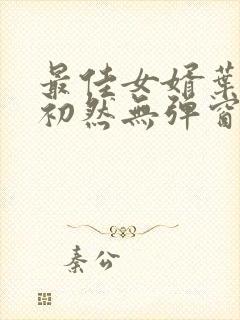 最佳女婿葉
初然無彈窗
秦公